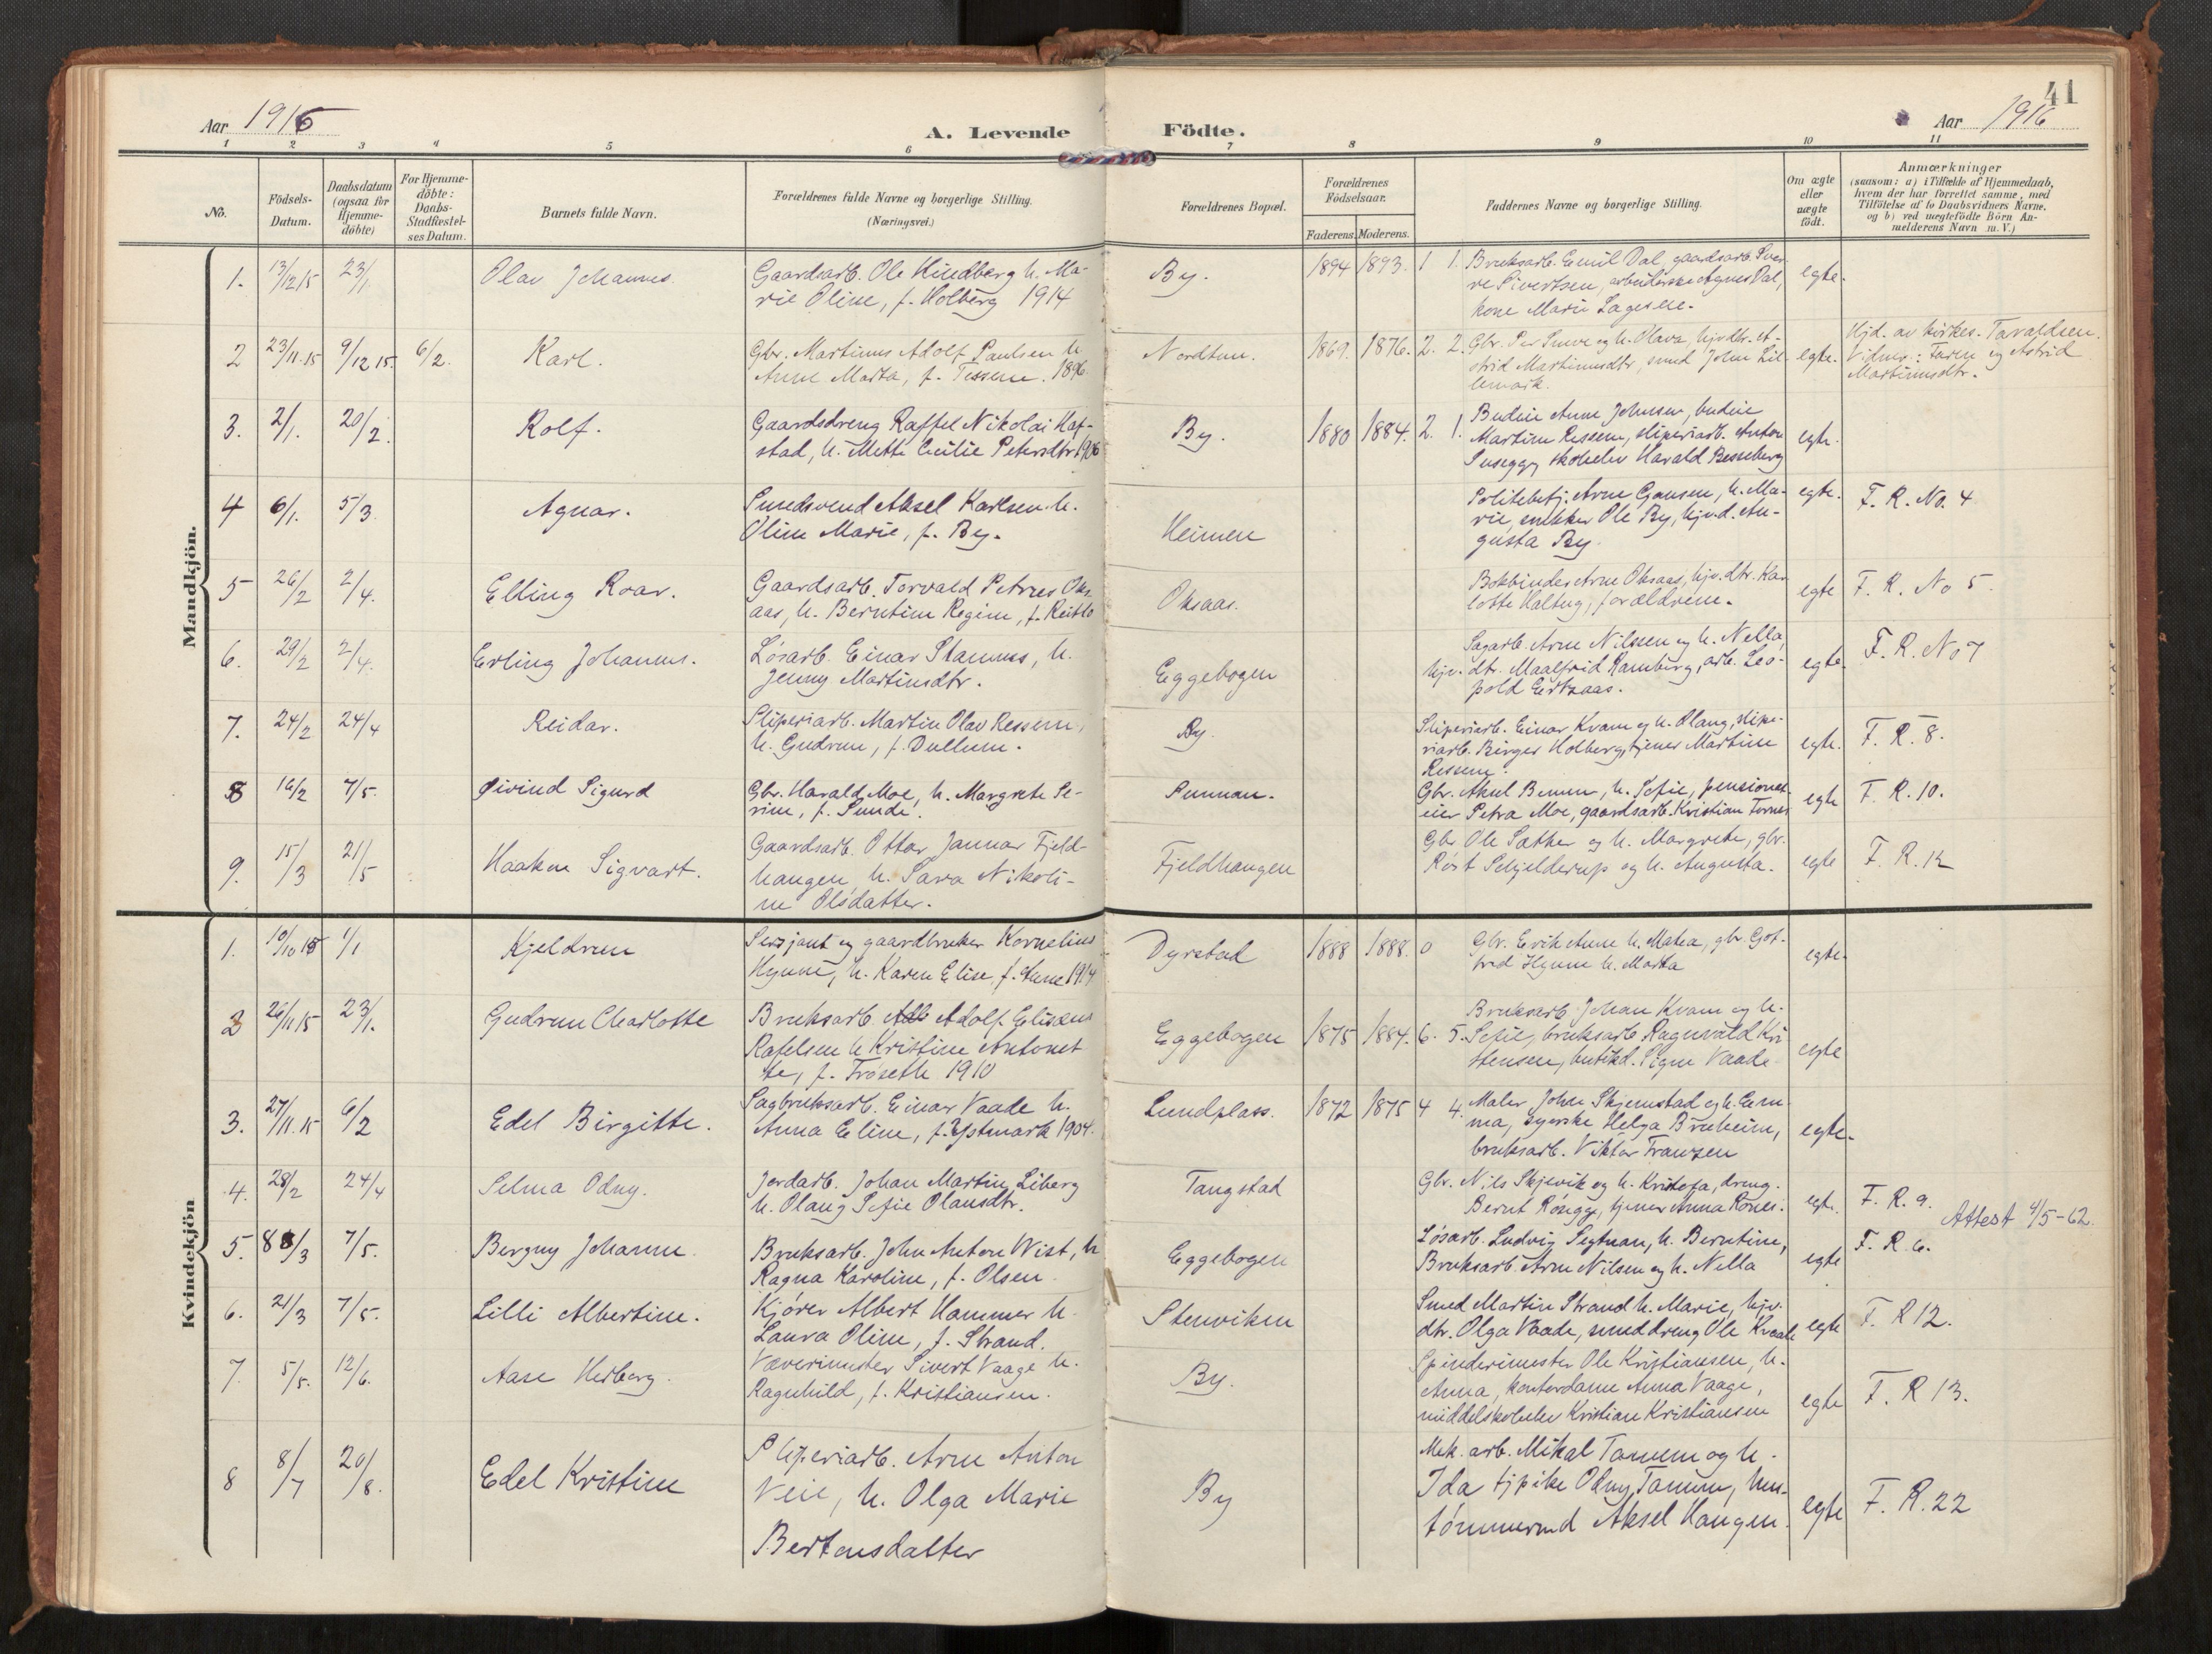 41
Aar 1916
A. Levende Födte.
Aar 1916
1 2 3 4 5 6 7 8 9 10 11
No.
Födsels-Datum.
Daabsdatum (ogsaa for Hjemme-döbte)
For Hjemme-döbte: Daabs-Stadfæstel-ses Datum.
Barnets fulde Navn.
Forældrenes fulde Navne og borgerlige Stilling.
(Næringsvei.)
Forældrenes Bopæl.
Forældrenes Födselsaar.
Faderens. Moderens.
Faddernes Navne og borgerlige Stilling.
Om ægte eller uægte födt.
Anmærkninger
(saasom: a) i Tilfælde af Hjemmedaab,
hvem der har forrettet samme, med
Tilföielse af to Daabsvidners Navne,
og b) ved uægtefödte Börn An-
melderens Navn m. V.)
Mandkjön.
1. 13/12 15 23/1. Olav Johannes.
Gaardsarb. Ole Hindberg h. Ma-
rie Oline, f. Holberg 1914
By. 1894 1893. 1 1.
Bruksarb. Emil Dal, gaardsarb. Sver-
re Sivertsen, arbeiderske Agnes Dal,
kone Marie Lagesen.
egte.
2 23/11.15 9/12 15. 6/2. Karl.
Gbr. Martinus Adolf Paulsen h.
Anne Marta, f. Tessem. 1896.
Nordtun. 1869. 1876. 2. 2.
Gbr. Per Sunve og h. Olava, hjv.dtr. A-
strid Martinusdtr, smed John Lil-
lemark.
egte.
Hjd. av kirkes. Tavaldsen.
Vidner: Faren og Astrid
Martinusdtr.
3. 2/1. 20/2. Rolf.
Gaardsdreng Raffel Nikolai Haf-
stad, h. Mette Cecilie Petersdtr. 1906
By. 1880 1884. 2. 1.
Budeie Anne Johnsen, budeie
Martine Ressem, sliperiarb. Anton
skoleelev Harald Besseberg
egte.
4 6/1. 5/3 Agnar.
Smedsvend Aksel Karlsen h.
Oline Marie, f. By.
Heimen
Politibetj. Arne Gausen, h. Ma-
rie, snikker Ole By, hjv.d. Au-
gusta By.
egte. F. R. No. 4
5 26/2 2/4. Elling Roar.
Gaardsarb. Torvald Petrus Oks-
aas, h. Berntine Regine, f. Reitlo
Oksaas.
Bokbinder Arne Oksaas, hjv.dtr. Kar
lotte Haltug, forældrene.
egte F. R. No 5.
6. 29/2 2/4. Erling Johannes.
Løsarb. Einar Stamnes, h.
Jenny Martinsdtr.
Eggebogen
Sagarb. Arne Nilssen og h. Nella,
hjv. dtr. Maalfrid Ramberg, arb. Leo-
pold Eidsaas.
egte. F. R. No 7
7. 24/2 24/4 Reidar.
Sliperiarb. Martin Olav Ressem,
h. Gudrun, f. Dullum.
By.
Sliperiarb. Einar Kvam og h. Olaug, slipe-
riarb. Birger Holberg, tjener Martine
Ressem.
egte. F. R. 8.
8 16/2 7/5. Øivind Sigurd
Gbr. Harald Moe, h. Margrete Se-
rine, f. Sunde.
Sunnan.
Gbr. Aksel Bomen, h. Sofie, pensionat-
eier Petra Moe, gaardsarb. Kristian Tornes
egte F. R. 10.
9. 15/3 21/5 Haakon Sigvart.
Gaardsarb. Ottar Januar Fjeld-
haugen h. Sara Nikoli-
ne Olsdatter.
Fjeldhaugen
Gbr. Ole Sæther og h. Margrete, gbr.
Røst Schjelderup og h. Augusta.
egte F. R. 12
Kvindekjön
1. 10/10 15 1/1 Kjeldrun
Sersjant og gaardbruker Kornelius
Hynne, h. Karen Elise, f. Aune 1914
Dyrstad 1888 1888. 0
Gbr. Erik Aune h. Matea, gbr. Got-
fred Hynne h. Marta
egte.
2 26/11 15 23/1. Gudrun Charlotte
Bruksarb. Adolf Elisæus
Rafelsen h Kristine Antonet
te, f. Trøseth 1910
Eggebogen 1875 1884. 6. 5.
Bruksarb. Johan Kvam og h.
Sofie, bruksarb. Ragnvald Kri
stensen, butikd. Signe Vaade
egte
3. 27/11.15 6/2 Edel Birgitte.
Sagbruksarb. Einar Vaade h.
Anna Eline, f. Østmark 1904.
Lundplass. 1872 1875 4 4.
Maler John Skjemstad og h. Em-
ma, syerske Helga Bruheim,
bruksarb. Viktor Franzen
egte.
4. 28/2 24/4 Selma Odny.
Jordarb. Johan Martin Liberg
h. Olaug Sofie Olausdtr.
Tangstad
Gbr. Nils Skjevik og h. Kristofa, dreng.
Bernt Røngg, tjener Anna Rones.
egte. F. R. 9.
Attest 4/5-62.
5. 8/3 7/5. Bergny Johanne.
Bruksarb. John Anton Wist, h
Ragna Karoline, f. Olsen.
Eggebogen
Løsarb. Ludvig Segtnan, h. Berntine,
Bruksarb. Arne Nilsen og h. Nella
egte F. R. 6.
6. 21/3 7/5. Lilli Albertine.
Kjører Albert Hammer h.
Laura Oline, f. Strand.
Stenviken
Smed Martin Strand h. Marie, hjv.
dtr. Olga Vaade, smeddreng Ole Kvaale
egte F. R 12.
7. 5/5. 12/6. Aase Herborg.
Vævermester Sivert Vaage h.
Ragnhild, f. Kristiansen.
By.
Spinderimester Ole Kristiansen, h.
Anna, kontordame Anna Vaage,
middelskoleelev Kristian Kristiansen
egte F. R 13.
8 8/7 20/8. Edel Kristine
Sliperiarb. Arne Anton
Veie, h. Olga Marie
Bertensdatter
By
Mek. arb. Mikal Tanem og h.
Ida tjpike Odny Tanem,
tømmermd Aksel Haugen.
egte F. R. 22